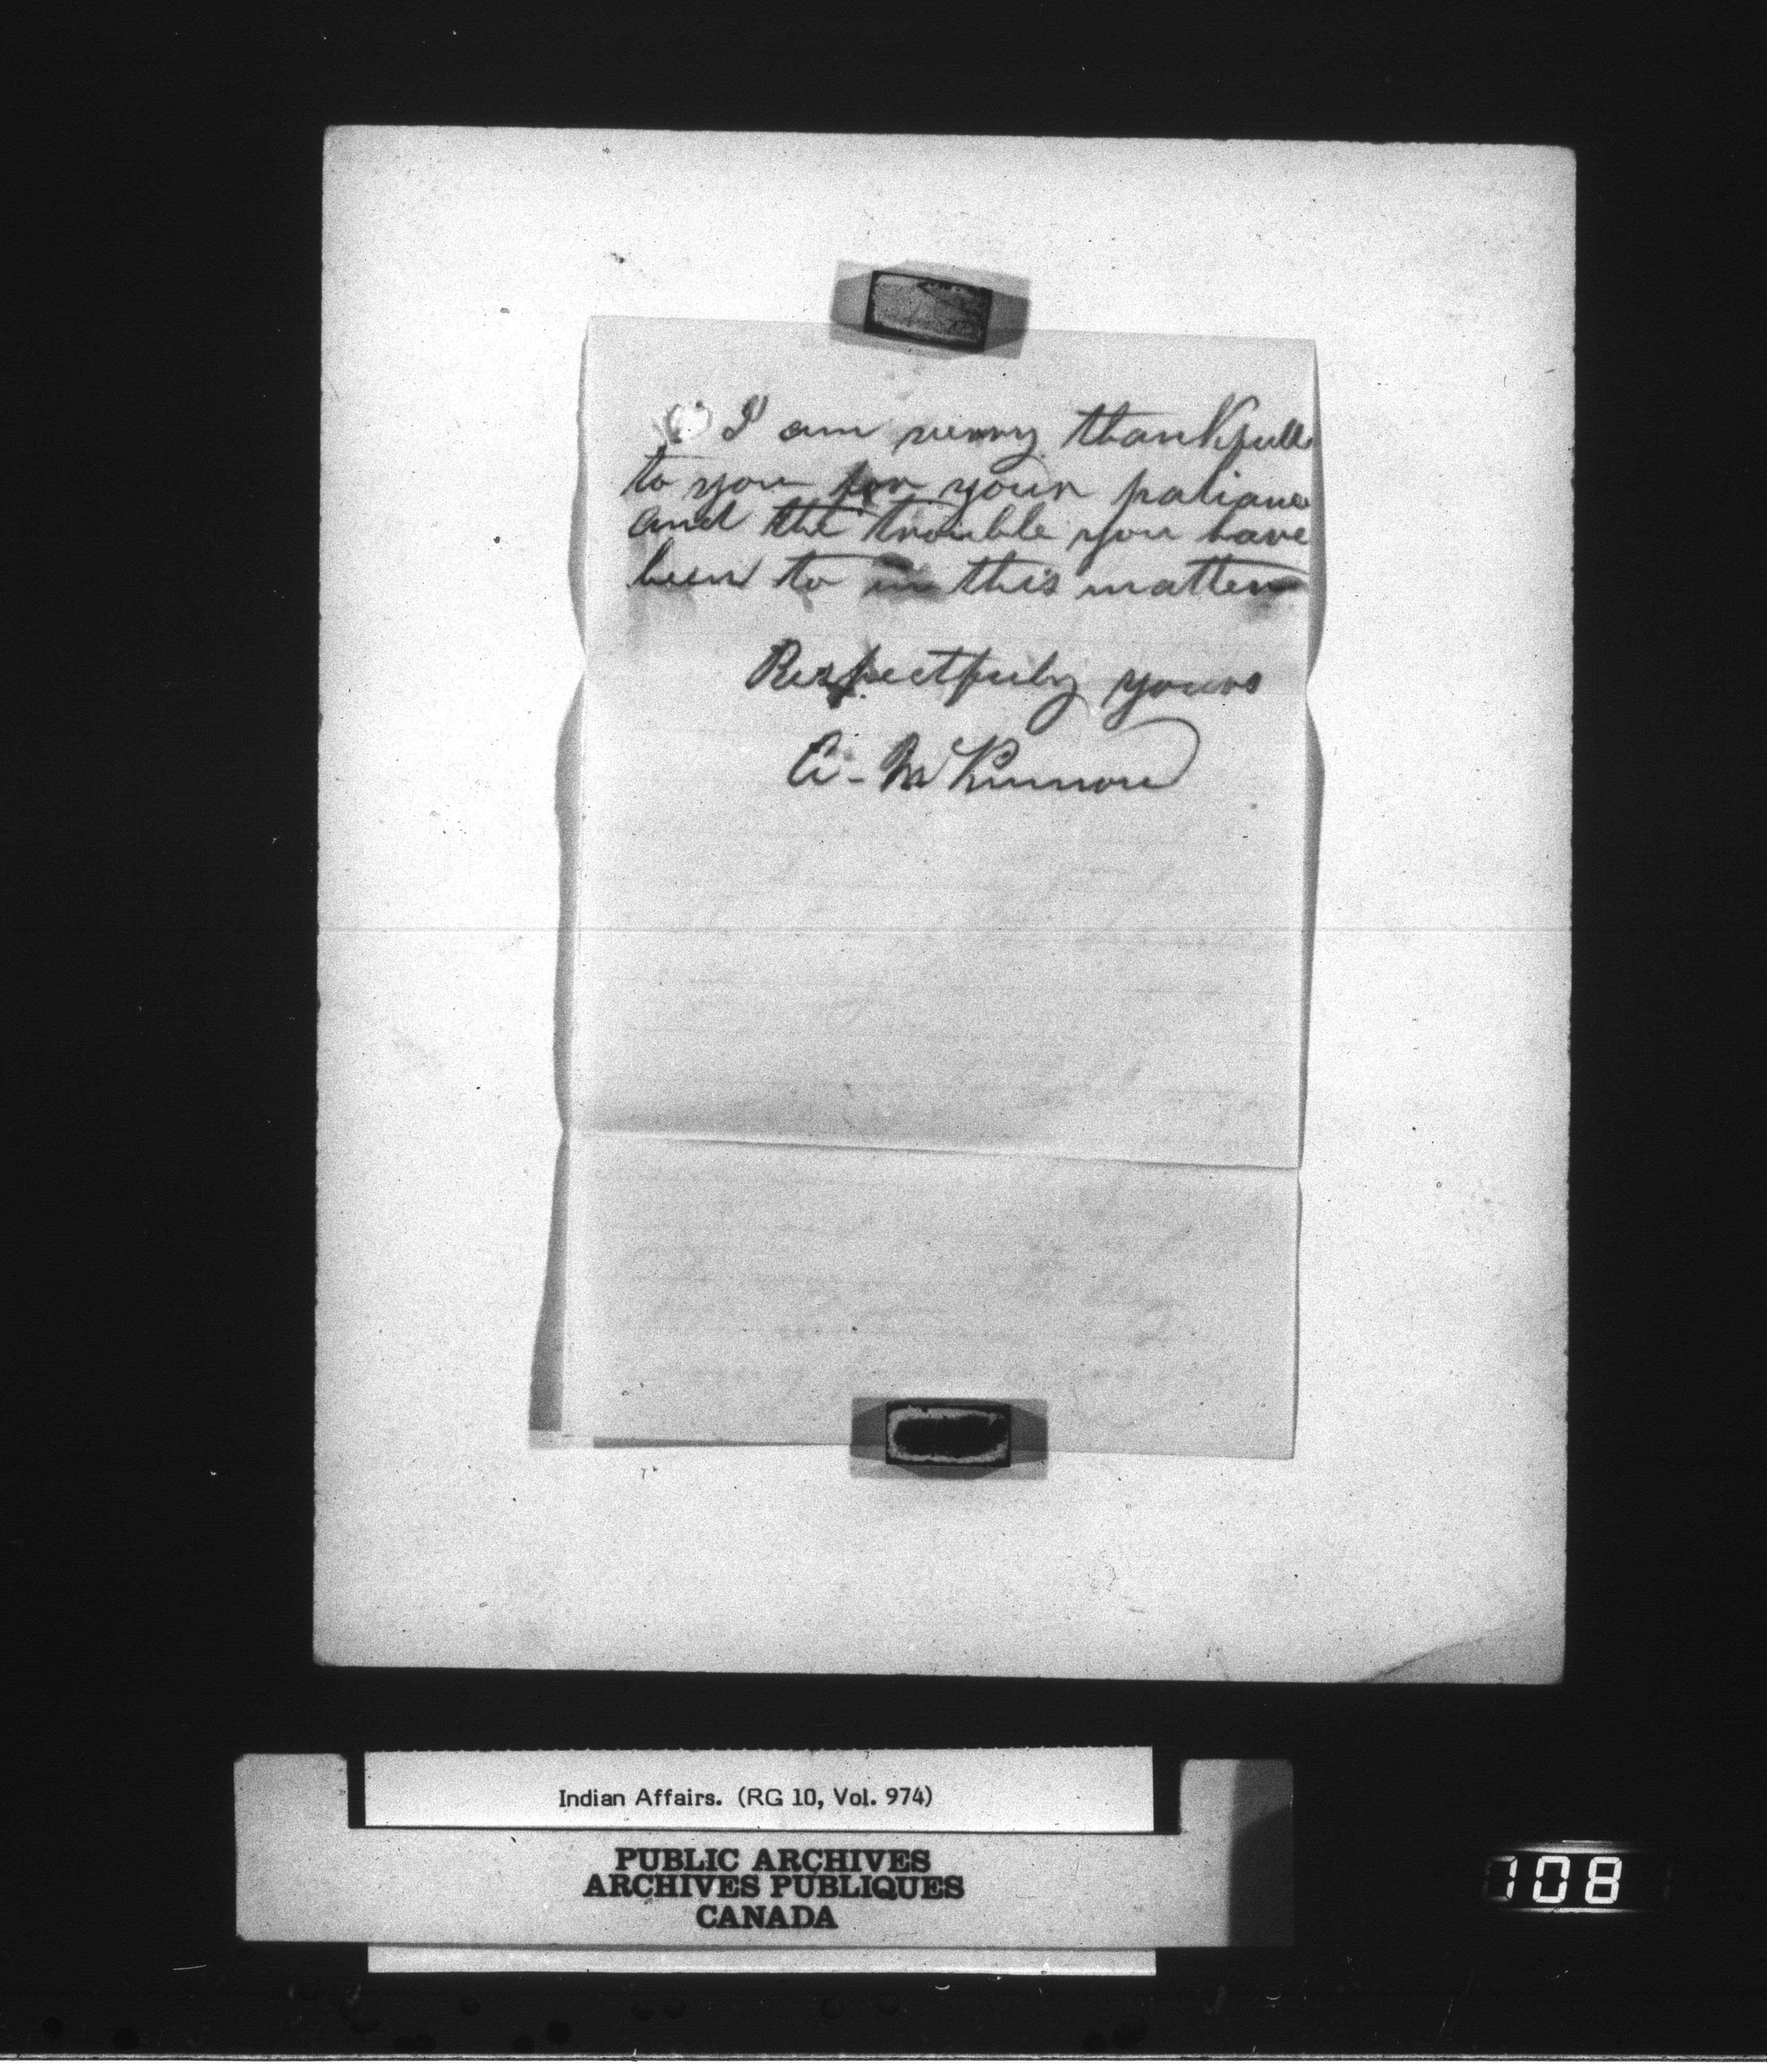 I am verry thankfull
to you for your patiance
and the trouble you have
been to in this matter
Respectfuly yours
A. McKinnon
Indian Affairs. (RG 10, Vol. 974)
PUBLIC ARCHIVES
ARCHIVES PUBLIQUES
CANADA
708